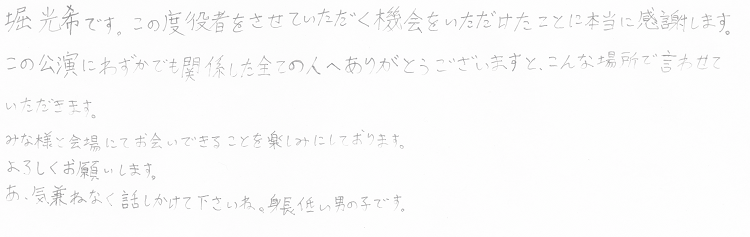 堀 光希です。この度役者をさせていただく機会をいただけたことに本当に感謝します。
この公演にわずかでも関係した全ての人へありがとうございますと、こんな場所で言わせて
いただきます。
みな様と会場にてお会いできることを楽しみにしております。
よろしくお願いします。
あ、気兼ねなく話しかけて下さいね。身長低い男の子です。